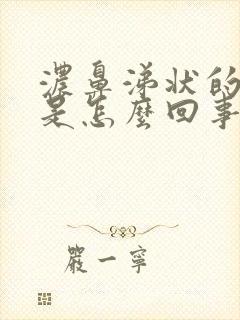 濃鼻涕狀的
是怎麼回事
嚴一寧